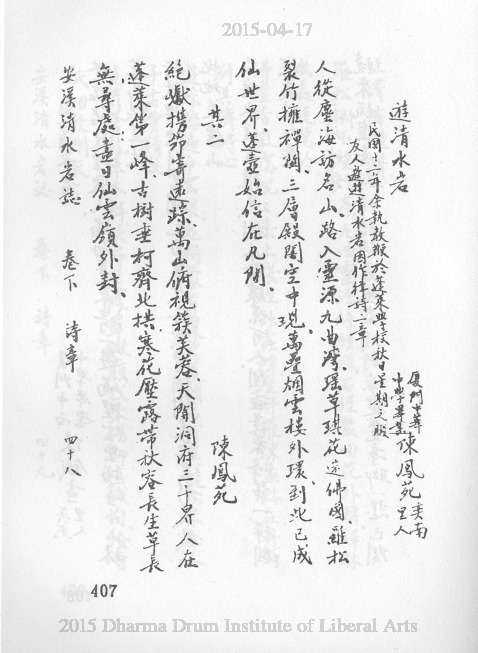 2015-04-17
遊清水岩
厦門中華中學畢業 陳鳳苑 奕南里人
民國十二年余執教鞭於蓬萊學校秋日星期之暇
友人邀遊清水岩因作律詩二章
人從塵海訪名山、路入靈源九曲灣、瑤草琪花迷佛國、雖松
裂竹擁禪關、三層殿閣空中現、萬疊烟雲樓外環、到此已成
仙世界、蓬壺始信在凡間、
其二
陳鳳苑
絕巘携筇寄遠踪、萬山俯視簇芙蓉、天開洞府三千界、人在
蓬萊第一峰、古樹垂柯齊北拱、寒花壓露帶秋容、長生草長
無尋處、盡日仙雲嶺外封、
安溪清水岩誌 卷下 詩章 四十八
407
2015 Dharma Drum Institute of Liberal Arts